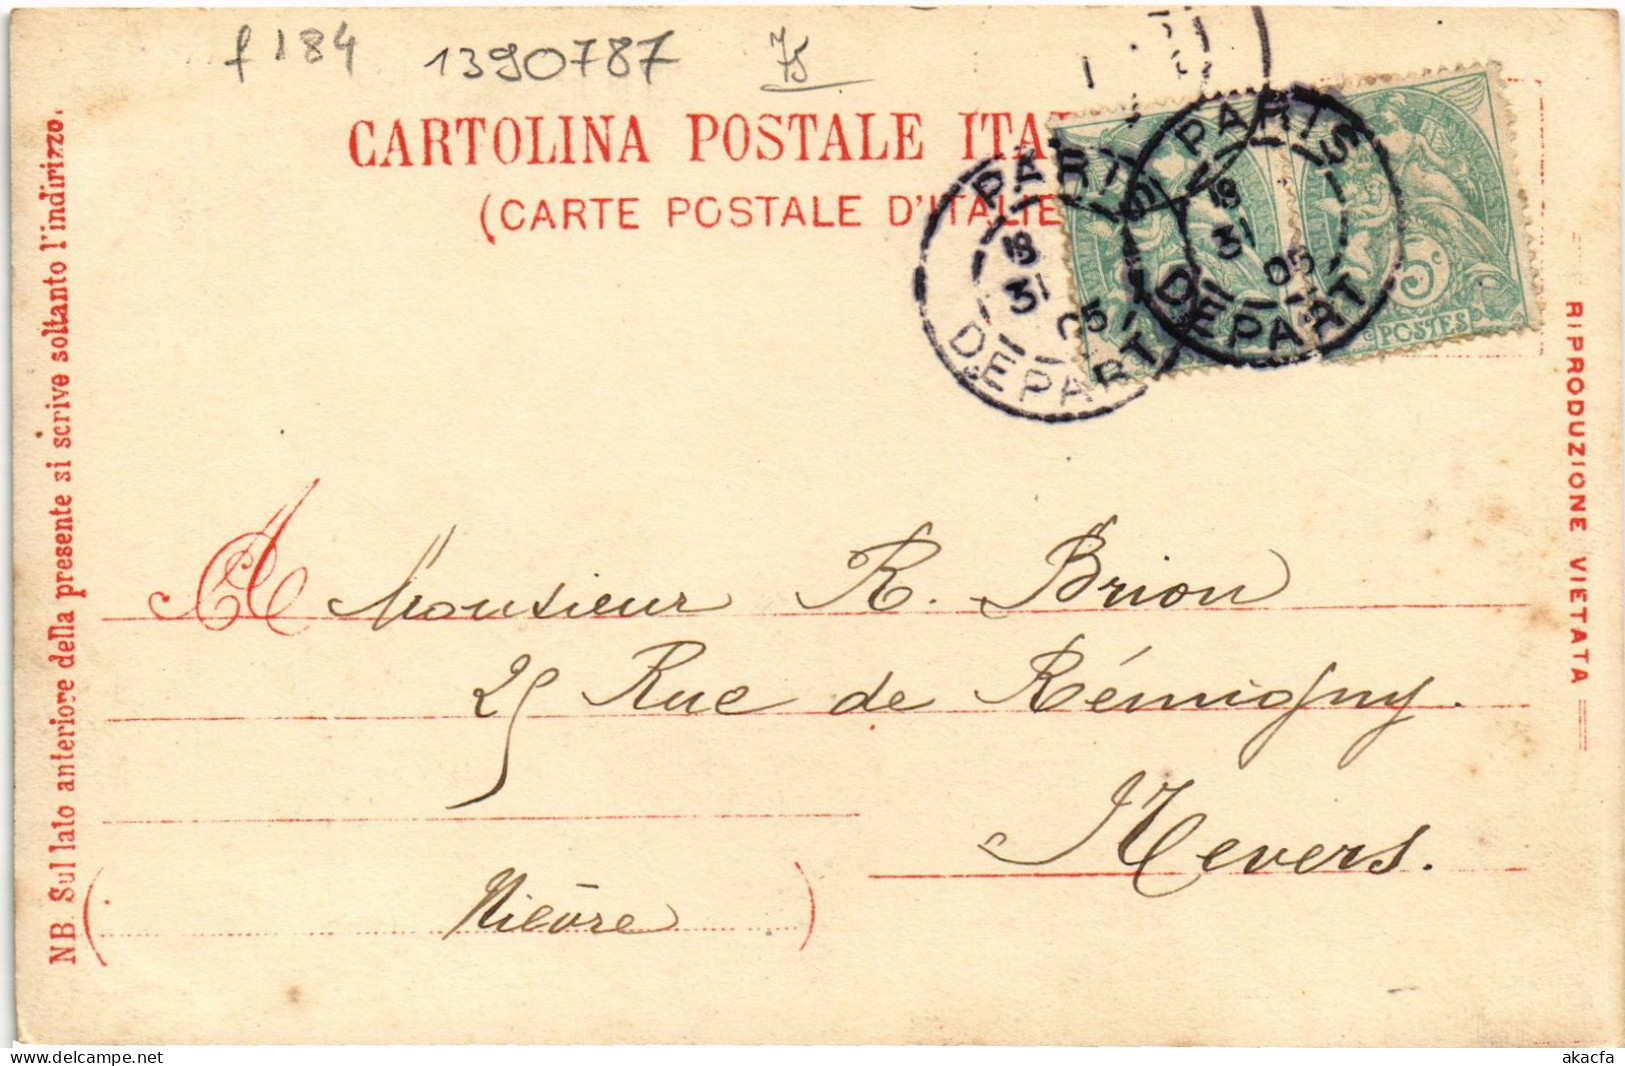 f 184 1390787 75
CARTOLINA POSTALE ITA
(CARTE POSTALE D'ITALIE
PARIS
18
31 05
DEPART
PARIS
18
31 05
DEPART
5c
POSTES
NB. Sul lato anteriore della presente si scrive soltanto l'indirizzo.
RIPRODUZIONE VIETATA
A Monsieur R. Brion
25 Rue de Rémigny.
Nevers.
(Nièvre)
delcampe.net
akacfa